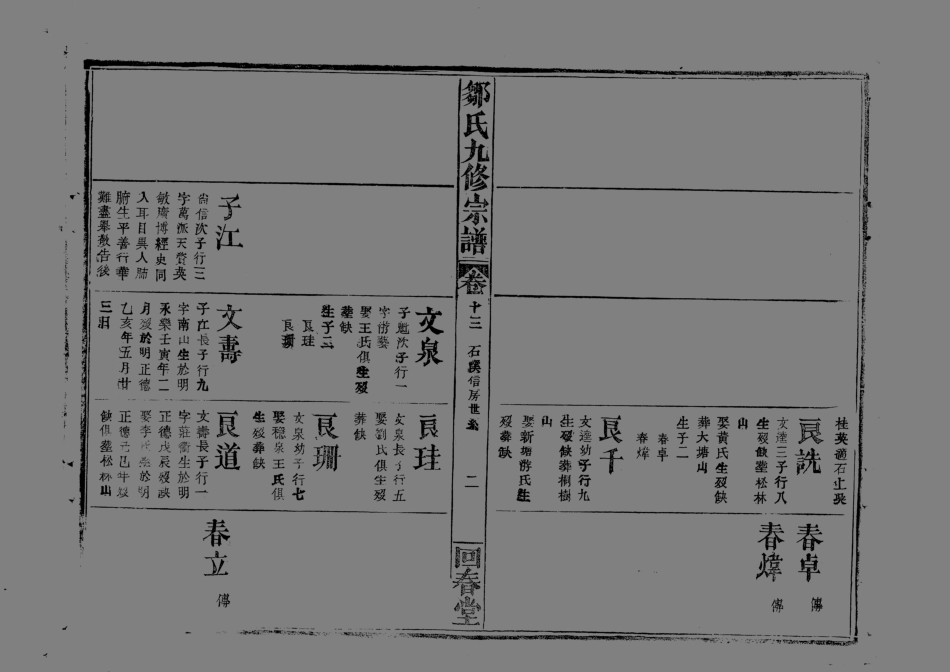 桂英適石上吳
良詵
文達三子行八
生歿缺塟松林
山
娶黃氏生歿缺
葬大塘山
生子二
春卓
春煒
良千
文達幼子行九
生歿缺葬桐樹
山
娶新塘游氏生
歿葬缺
春卓
傳
春煒
傳
鄒氏九修宗譜
卷十三
石溪信房世系
二
回春堂
文泉
子魁次子行一
字
娶王氏俱生歿
塟缺
生子二
良珪
良珊
良珪
文泉長子行五
娶劉氏俱生歿
葬缺
良珊
文泉幼子行七
娶穩泉王氏俱
生歿葬缺
子江
尚信次子行三
字萬派天資英
敏廣博經史同
入耳目異人肺
腑生平善行華
難盡舉敘告後
文壽
子江長子行九
字南山生於明
永樂壬寅年二
月歿於明正德
乙亥年五月廿
三日
良道
文壽長子行一
字莊衢生於明
正德戊辰歿缺
娶李氏生於明
正德己巳年歿
缺俱塟松林山
春立
傳